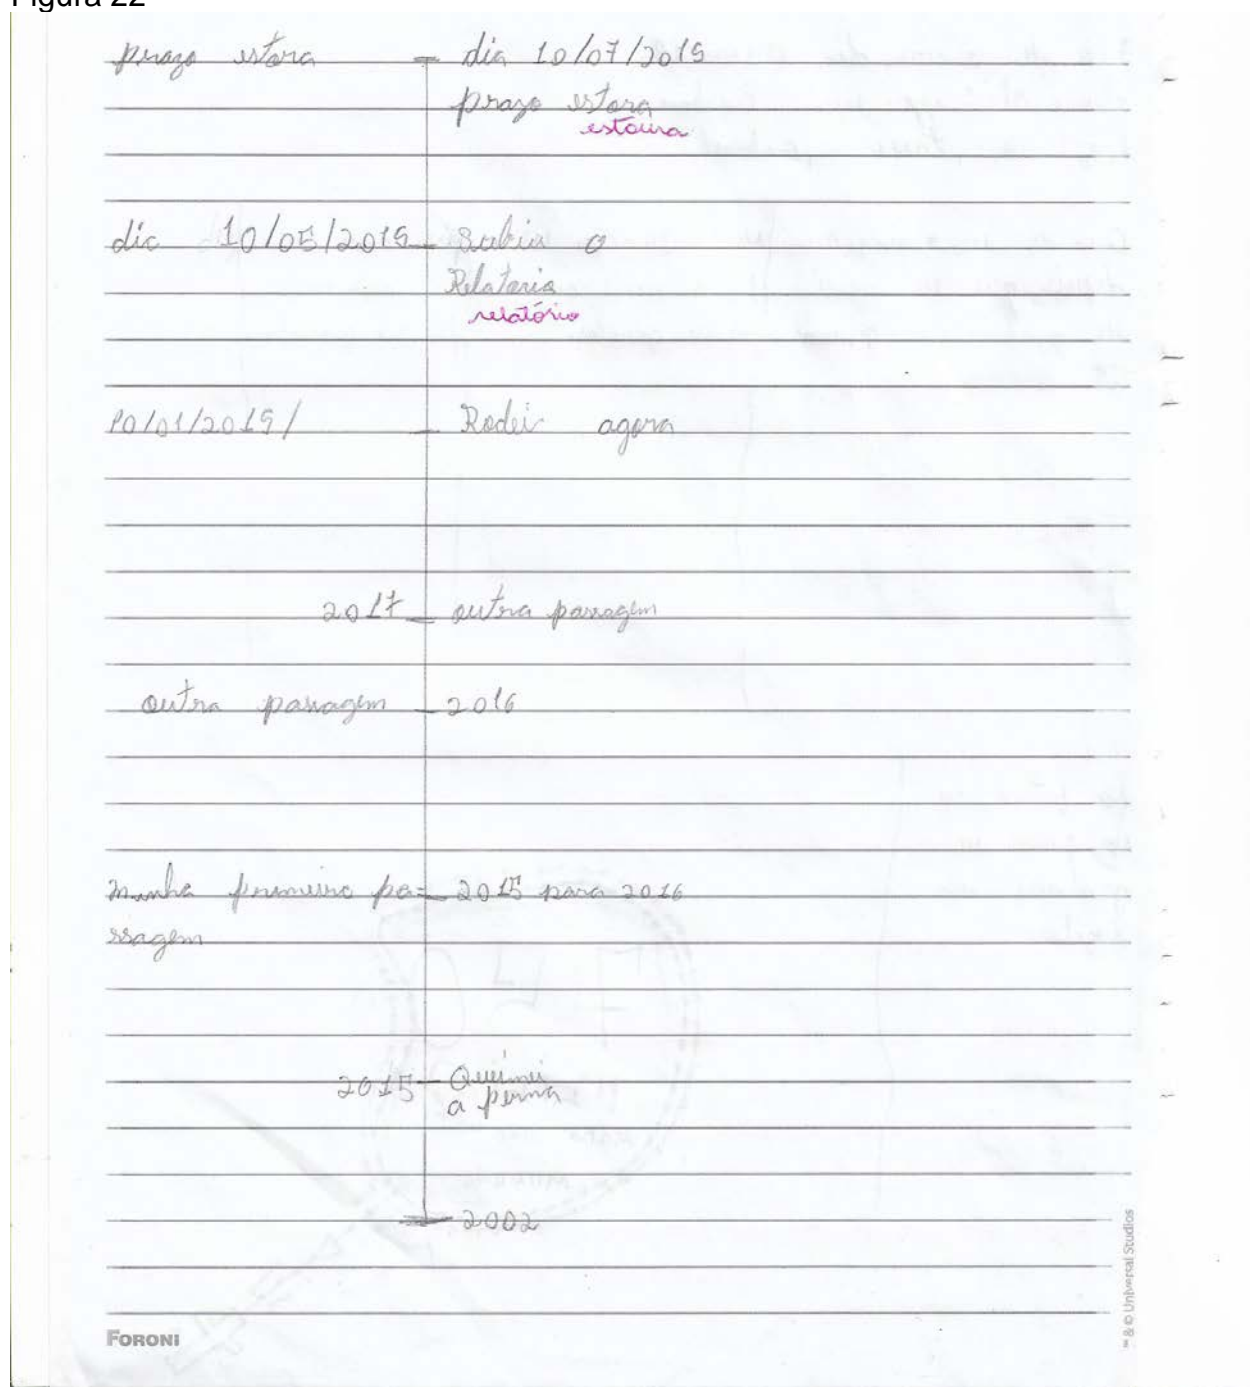 Figura 22
prazo estora dia 10/07/2019
prazo estora
estoura
dia 10/05/2019 Subiu o
Relatorio
relatório
10/01/2019/ Rodei agora
2017 outra passagem
outra passagem 2016
minha primeiro pa=
ssagem
2015 para 2016
2015 Queimei
a perna
2002
FORONI
™ & © Universal Studios